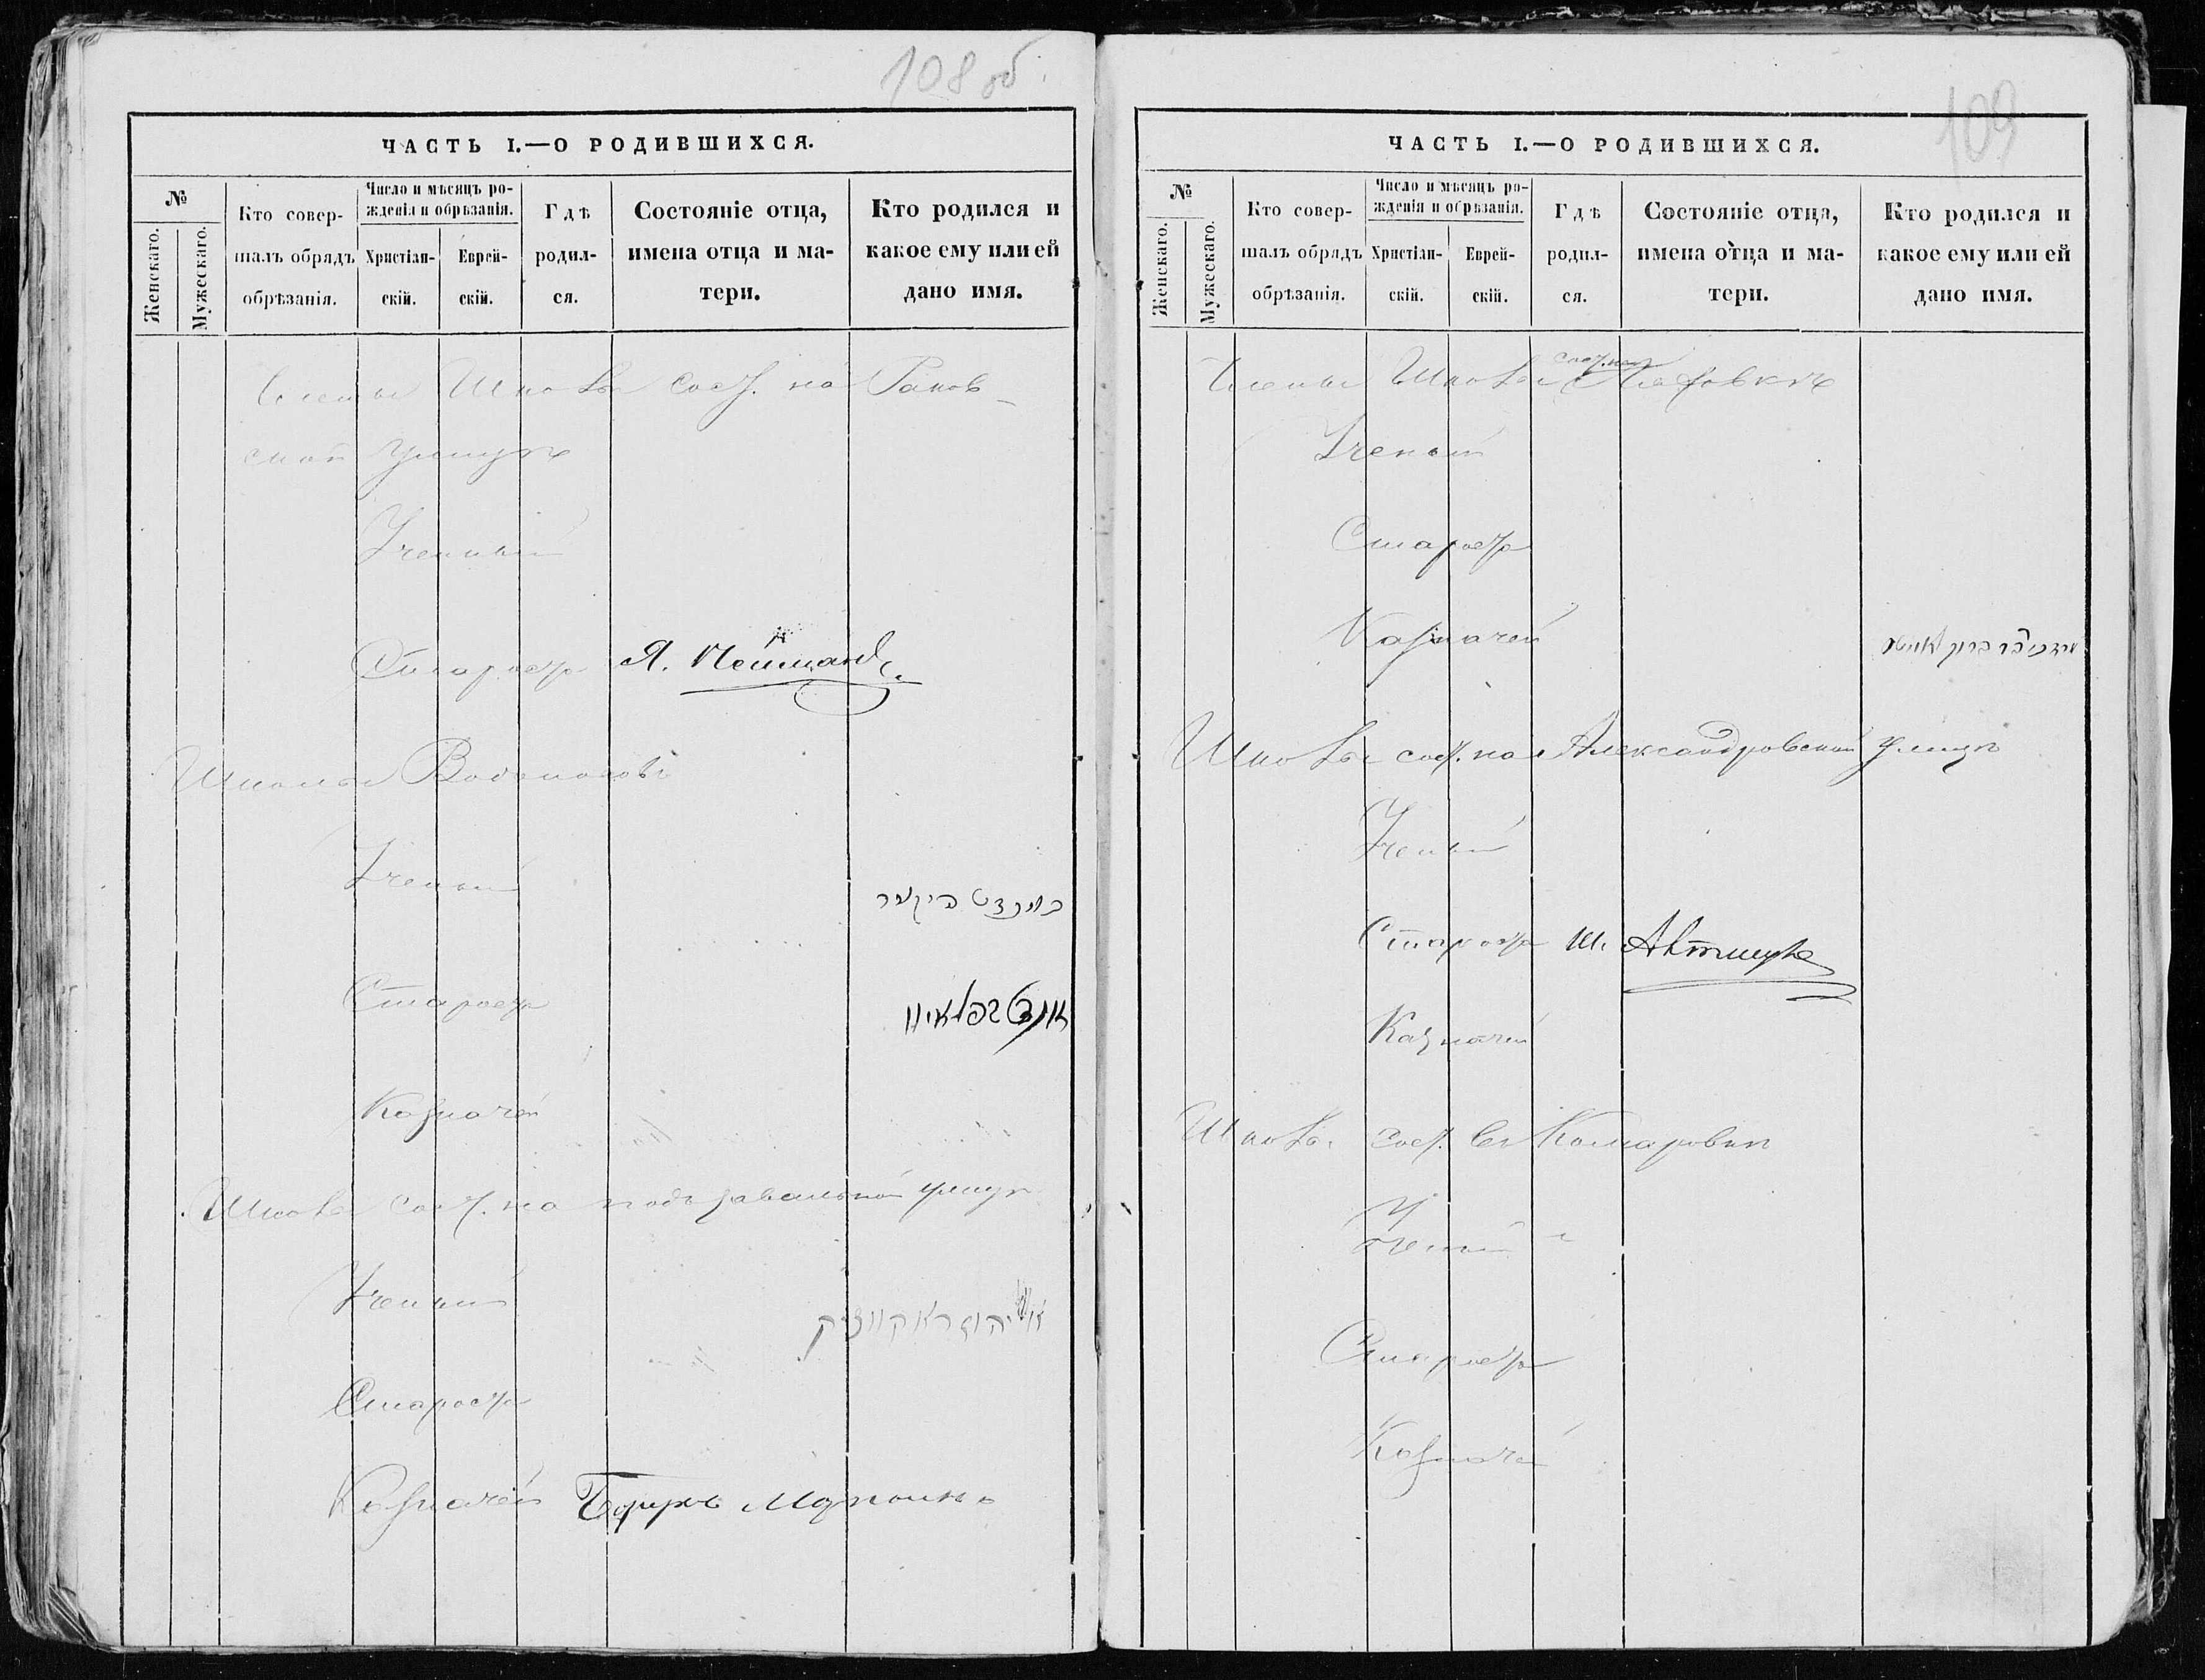 108 об.
ЧАСТЬ I.—О РОДИВШИХСЯ.
№
Женскаго.
Мужескаго.
Кто совер-
шалъ обрядъ
обрѣзанія.
Число и мѣсяцъ ро-
жденія и обрѣзанія.
Христіан-
скій.
Еврей-
скій.
Гдѣ
родил-
ся.
Состояніе отца,
имена отца и ма-
тери.
Кто родился и
какое ему или ей
дано имя.
Члены Школы сост. на Раков-
ской улицѣ
Ученый
Староста Я. Нейманъ
Школы Водоносовъ
Ученый
Староста
Казначей
Школы сост. на подъзавальной улицѣ
Ученый
Староста
Казначей
109
ЧАСТЬ I.—О РОДИВШИХСЯ.
№
Женскаго.
Мужескаго.
Кто совер-
шалъ обрядъ
обрѣзанія.
Число и мѣсяцъ ро-
жденія и обрѣзанія.
Христіан-
скій.
Еврей-
скій.
Гдѣ
родил-
ся.
Состояніе отца,
имена отца и ма-
тери.
Кто родился и
какое ему или ей
дано имя.
Члены Школы
Ученый
Староста
Казначей
Школы сост. на Александровской улицѣ
Ученый
Староста Ш.
Казначей
Школы сост. въ Комаровкѣ
Ученый
Староста
Казначей